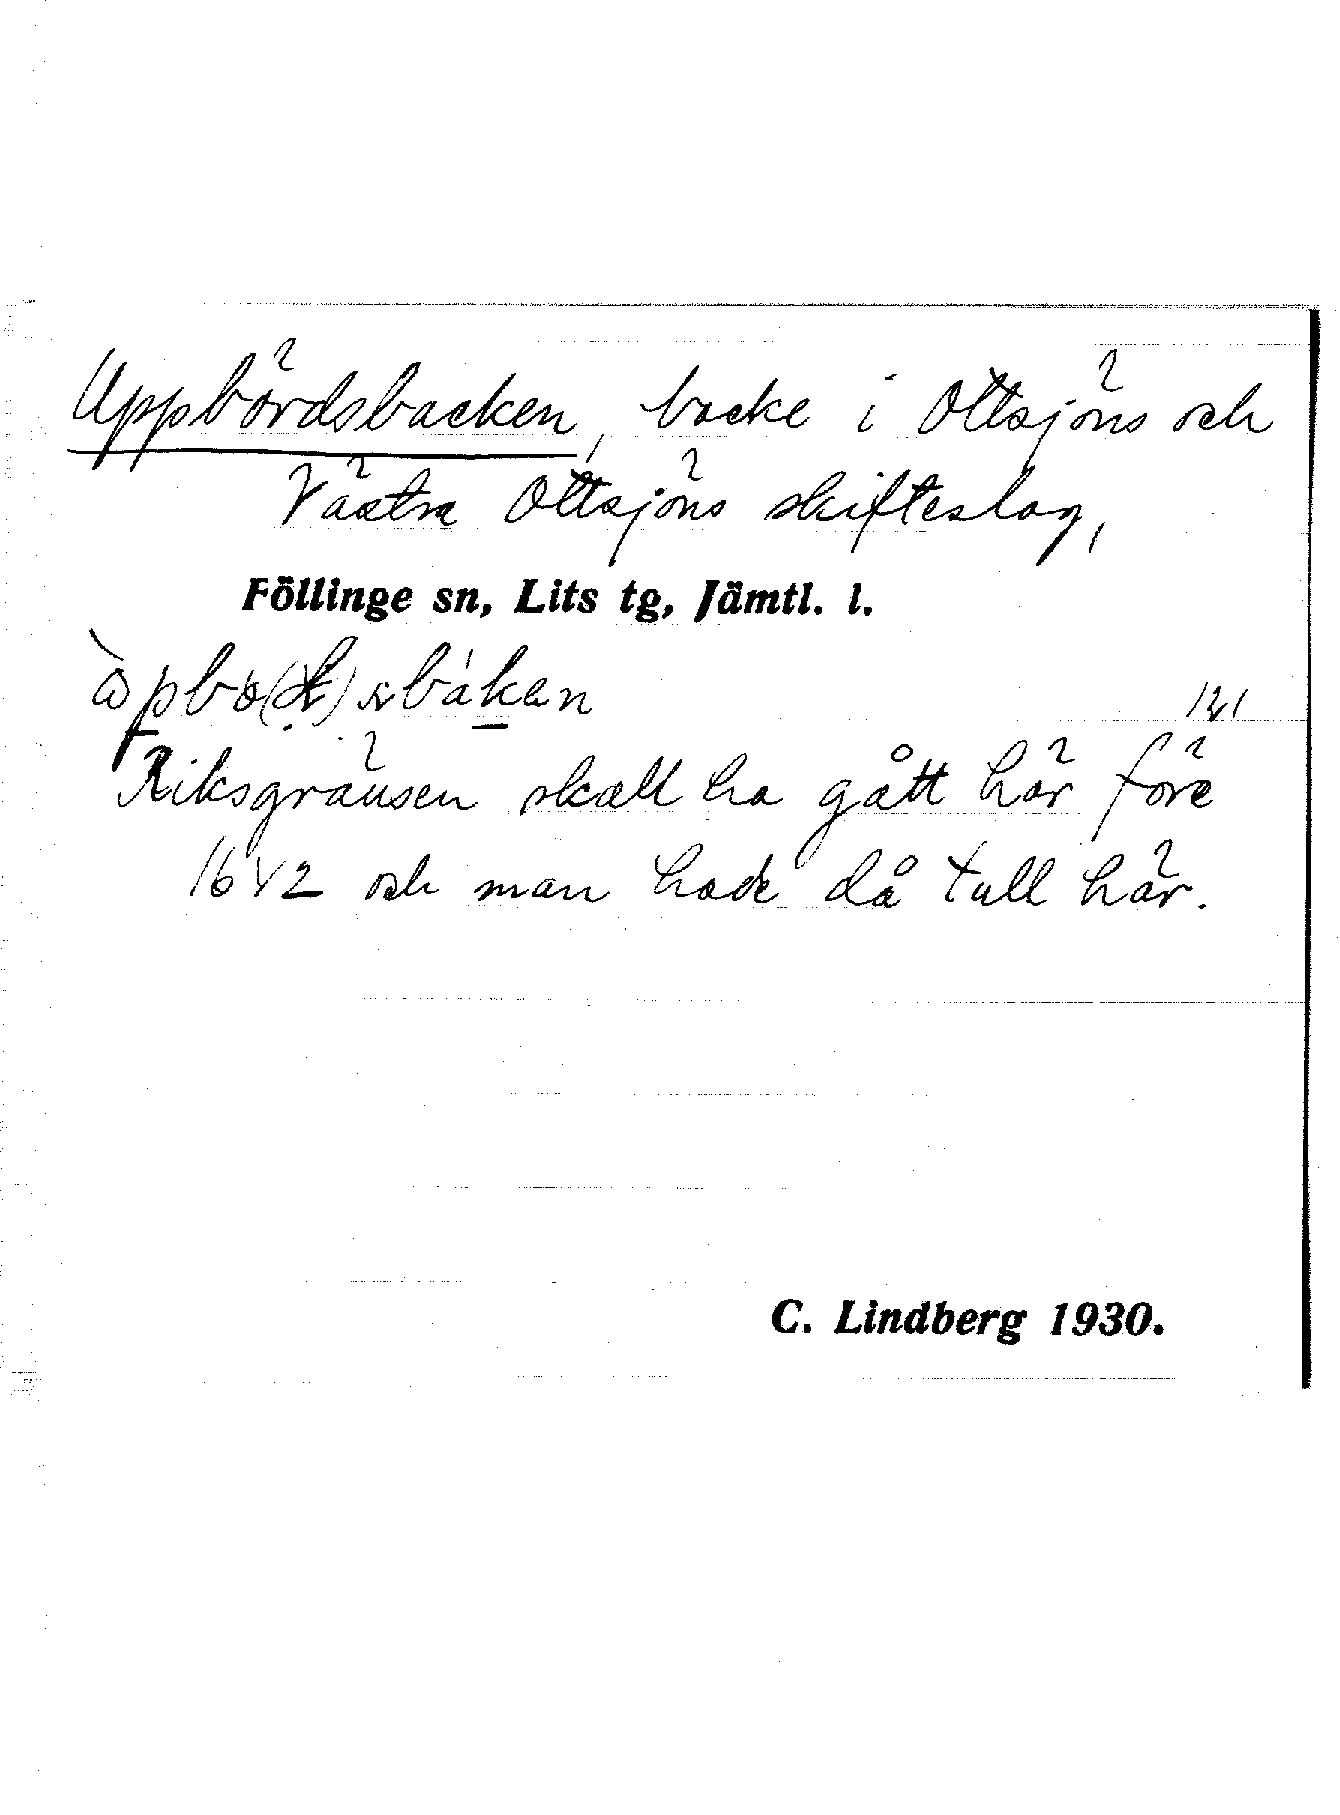 Uppbördsbacken, backe i Ottsjöns och
Västra Ottsjöns skifteslag,
Föllinge sn, Lits tg, Jämtl. l.
Riksgränsen skall ha gått här före
1642 och man hade då tull här.
C. Lindberg 1930.